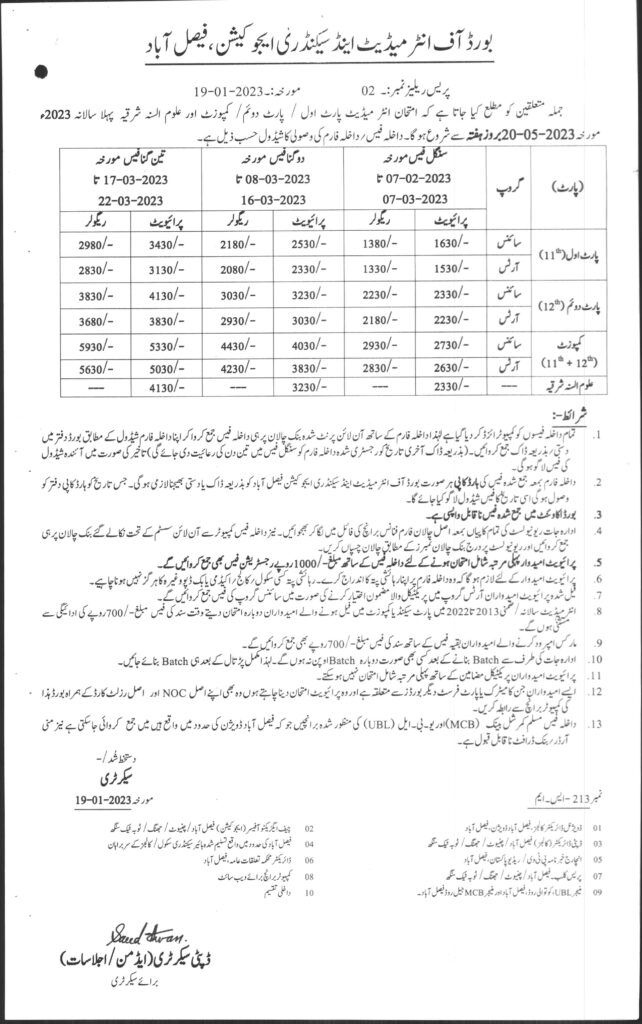 بورڈ آف انٹر میڈیٹ اینڈ سیکنڈری ایجوکیشن، فیصل آباد
پریس ریلیز نمبر:۔ 02 مورخہ:۔ 19-01-2023
جملہ متعلقین کو مطلع کیا جاتا ہے کہ امتحان انٹر میڈیٹ پارٹ اول / پارٹ دوئم / کمپوزٹ اور علوم السنہ شرقیہ پہلا سالانہ 2023ء
مورخہ 20-05-2023 بروز ہفتہ سے شروع ہوگا۔ داخلہ فیس / داخلہ فارم کی وصولی کا شیڈول حسب ذیل ہے۔
(پارٹ) گروپ سنگل فیس مورخہ 07-02-2023 تا 07-03-2023 دوگنا فیس مورخہ 08-03-2023 تا 16-03-2023 تین گنا فیس مورخہ 17-03-2023 تا 22-03-2023
پرائیویٹ ریگولر پرائیویٹ ریگولر پرائیویٹ ریگولر
پارٹ اول (11th) سائنس 1630/- 1380/- 2530/- 2180/- 3430/- 2980/-
آرٹس 1530/- 1330/- 2330/- 2080/- 3130/- 2830/-
پارٹ دوئم (12th) سائنس 2330/- 2230/- 3230/- 3030/- 4130/- 3830/-
آرٹس 2230/- 2180/- 3030/- 2930/- 3830/- 3680/-
کمپوزٹ (11th + 12th) سائنس 2730/- 2930/- 4030/- 4430/- 5330/- 5930/-
آرٹس 2630/- 2830/- 3830/- 4230/- 5030/- 5630/-
علوم السنہ شرقیہ 2330/- ---- 3230/- ---- 4130/- ----
شرائط:-
1. تمام داخلہ فیسوں کو کمپیوٹرائزڈ کر دیا گیا ہے لہذا داخلہ فارم کے ساتھ آن لائن پرنٹ شدہ بنک چالان پر ہی داخلہ فیس جمع کروا کر اپنا داخلہ فارم شیڈول کے مطابق بورڈ دفتر میں
دستی / بذریعہ ڈاک جمع کروائیں۔ (بذریعہ ڈاک آخری تاریخ کو رجسٹری شدہ داخلہ فارم کو سنگل فیس میں تین دن کی رعایت دی جائے گی) تاخیر کی صورت میں آئندہ شیڈول
کی فیس لاگو ہوگی۔
2. داخلہ فارم بمعہ جمع شدہ فیس کی ہارڈ کاپی ہر صورت بورڈ آف انٹر میڈیٹ اینڈ سیکنڈری ایجوکیشن فیصل آباد کو بذریعہ ڈاک یا دستی بھیجنا لازمی ہوگی۔ جس تاریخ کو ہارڈ کاپی دفتر کو
وصول ہوگی اسی تاریخ کا فیس شیڈول لاگو کیا جائے گا۔
3. بورڈ اکاؤنٹ میں جمع شدہ فیس ناقابل واپسی ہے۔
4. ادارہ جات ریونیو لسٹ کی تمام کاپیاں بمعہ اصل چالان فارم فنانس برانچ کی فائل میں لگا کر بھجوائیں۔ نیز داخلہ فیس کمپیوٹر سے آن لائن سسٹم کے تحت نکالے گئے بنک چالان پر ہی
جمع کروائیں اور ریونیو لسٹ پر درج بنک چالان نمبرز کے مطابق چالان چسپاں کریں۔
5. پرائیویٹ امیدوار پہلی مرتبہ شامل امتحان ہونے کے لئے داخلہ فیس کے ساتھ مبلغ -/1000 روپے رجسٹریشن فیس بھی جمع کروائیں گے۔
6. پرائیویٹ امیدوار کے لئے لازم ہوگا کہ وہ داخلہ فارم پر اپنا رہائشی پتہ کا اندراج کرے۔ رہائشی پتہ کسی سکول / کالج / اکیڈمی یا بک ڈپو وغیرہ کا ہرگز نہیں ہونا چاہیے۔
7. فیل شدہ پرائیویٹ امیدواران آرٹس گروپ میں پریکٹیکل والا مضمون اختیار کرنے کی صورت میں سائنس گروپ کی فیس جمع کروائیں گے۔
8. انٹر میڈیٹ سالانہ / ضمنی 2013 تا 2022 میں پارٹ سیکنڈ یا کمپوزٹ میں فیل ہونے والے امیدواران دوبارہ امتحان دیتے وقت سند کی فیس مبلغ -/700 روپے کی ادائیگی سے
مستثنیٰ ہوں گے۔
9. مارکس امپروو کرنے والے امیدواران بقیہ فیس کے ساتھ سند کی فیس مبلغ -/700 روپے بھی جمع کروائیں گے۔
10. ادارہ جات کی طرف سے Batch بنانے کے بعد کسی بھی صورت دوبارہ Batch اوپن نہ ہوں گے۔ لہذا مکمل پڑتال کے بعد ہی Batch بنائے جائیں۔
11. پرائیویٹ امیدواران پریکٹیکل مضامین کے ساتھ پہلی مرتبہ شامل امتحان نہیں ہو سکتے۔
12. ایسے امیدواران جن کا میٹرک یا پارٹ فرسٹ دیگر بورڈز سے متعلقہ ہے اور وہ پرائیویٹ امتحان دینا چاہتے ہوں وہ بھی اپنے اصل NOC اور اصل رزلٹ کارڈ کے ہمراہ بورڈ ہذا
کی کمپیوٹر برانچ سے رابطہ کریں۔
13. داخلہ فیس مسلم کمرشل بینک (MCB) اور یو۔بی۔ایل (UBL) کی منظور شدہ برانچیں جو کہ فیصل آباد ڈویژن کی حدود میں واقع ہیں میں جمع کروائی جا سکتی ہے نیز منی
آرڈر / بنک ڈرافٹ ناقابل قبول ہے۔
دستخط شد /-
سیکرٹری
نمبر 213-ایس۔ایم مورخہ 19-01-2023
01 ڈویژنل ڈائریکٹر کالجز، فیصل آباد ڈویژن، فیصل آباد 02 چیف ایگزیکٹو آفیسر (ایجوکیشن) فیصل آباد / چنیوٹ / جھنگ / ٹوبہ ٹیک سنگھ
03 ڈپٹی ڈائریکٹر (کالجز) فیصل آباد / چنیوٹ / جھنگ / ٹوبہ ٹیک سنگھ 04 فیصل آباد کی حدود میں واقع تسلیم شدہ ہائیر سیکنڈری سکول / کالجز کے سربراہان
05 انچارج خبر نامہ پی ٹی وی / ریڈیو پاکستان، فیصل آباد 06 ڈائریکٹر محکمہ تعلقات عامہ، فیصل آباد
07 پریس کلب، فیصل آباد / چنیوٹ / جھنگ / ٹوبہ ٹیک سنگھ 08 کمپیوٹر برانچ برائے ویب سائٹ
09 منیجر UBL، کوتوالی روڈ، فیصل آباد اور منیجر MCB جیل روڈ فیصل آباد۔ 10 داخلی تقسیم
ڈپٹی سیکرٹری (ایڈمن / اجلاسات)
برائے سیکرٹری